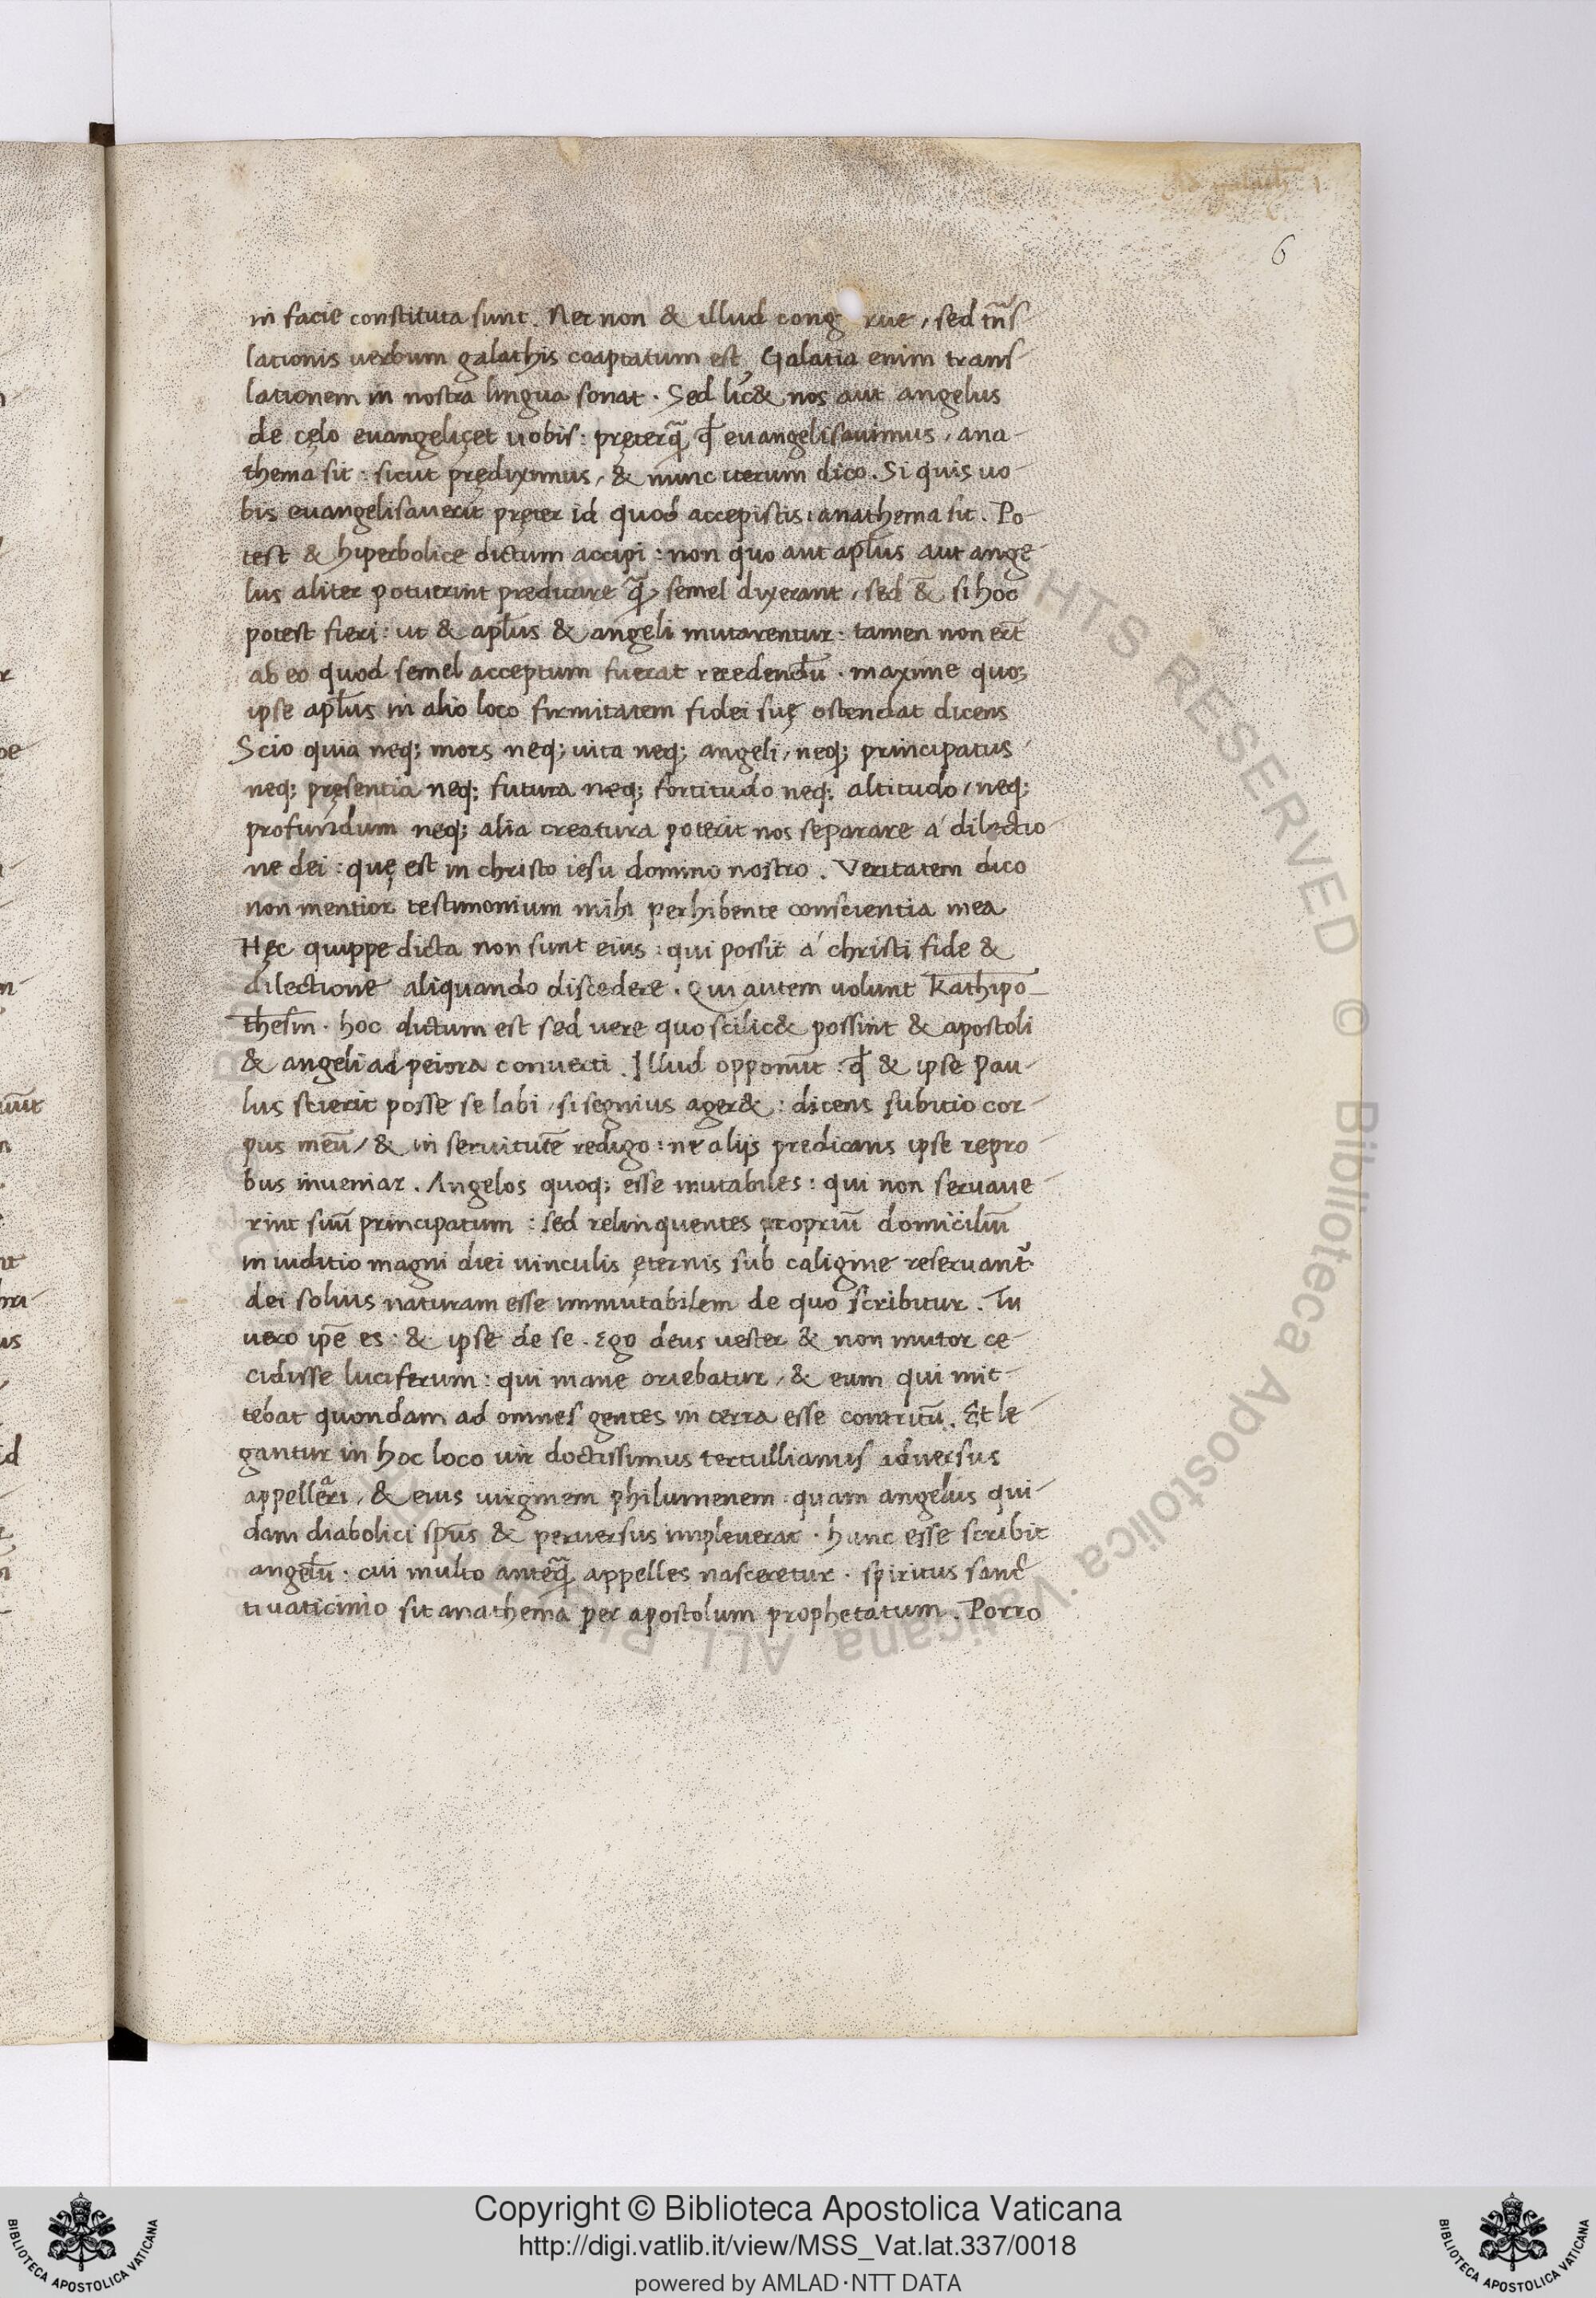 6
in facie constituta sunt. Nec non & illud cong rue, sed tra̅s
lationis uerbum galathis coaptatum est, Galatia enim trans-
lationem in nostra lingua sonat. Sed lic& nos aut angelus
de cęlo euangeliçet uobis: pręterq̃ qđ euangelisauimus, ana-
thema sit: sicut prędiximus, & nunc iterum dico. Si quis uo-
bis euangelisauerit pręter id quod accepistis, anathema sit. Po-
test & hiperbolice dictum accipi: non quo aut apl̅us aut ange-
lus aliter potuerint predicare q̃ semel dixerant, sed &̅ si hoc
potest fieri: ut & apl̅us & angeli mutarentur: tamen non er̅t
ab eo quod semel acceptum fuerat recedendu̅. maxime quo;
ipse apl̅us in alio loco firmitatem fidei suę ostendat dicens
Scio quia neq; mors neq; uita neq; angeli, neq; principatus
neq; pręsentia neq; futura neq; fortitudo neq; altitudo, neq;
profundum neq; alia creatura poterit nos separare á dilectio-
ne dei: quę est in christo iesu domino nostro. Veritatem dico
non mentior testimonium mihi perhibente conscientia mea
Hęc quippe dicta non sunt eius: qui possit á christi fide &
dilectione aliquando discedere. Qui autem uolunt kathipo-
thesin. hoc dictum est sed uere quo scilic& possint & apostoli
& angeli ad peiora conuerti. Illud opponu̅t: qđ & ipse Pau-
lus scierit posse se labi, si segnius ager&: dicens subitio cor-
pus meu̅, & in seruitute̅ redigo: ne alijs predicans ipse repro-
bus inueniar. Angelos quoq; esse mutabiles: qui non seruaue-
rint suu̅ principatum: sed relinquentes propriu̅ domiciliu̅
in iuditio magni diei uinculis ęternis sub caligine reseruant᷑
dei solius naturam esse immutabilem de quo scribitur. Tu
uero ip̅e es: & ipse de se. Ego deus uester & non mutor ce-
cidisse luciferum: qui mane oriebatur, & eum qui mit-
tebat quondam ad omnes gentes in terra esse contritu̅. Et le-
gantur in hoc loco uir doctissimus tertullianus aduersus
appelle̅ri, & eius uirginem philumenem quam angelus qui-
dam diabolici sp̅us & peruersus impleuerat. hunc esse scribit
angelu̅. cui multo anteq̃ appelles nasceretur. spiritus sanc-
ti uaticinio sit anathema per apostolum prophetatum. Porro
Copyright © Biblioteca Apostolica Vaticana
http://digi.vatlib.it/view/MSS_Vat.lat.337/0018
powered by AMLAD·NTT DATA